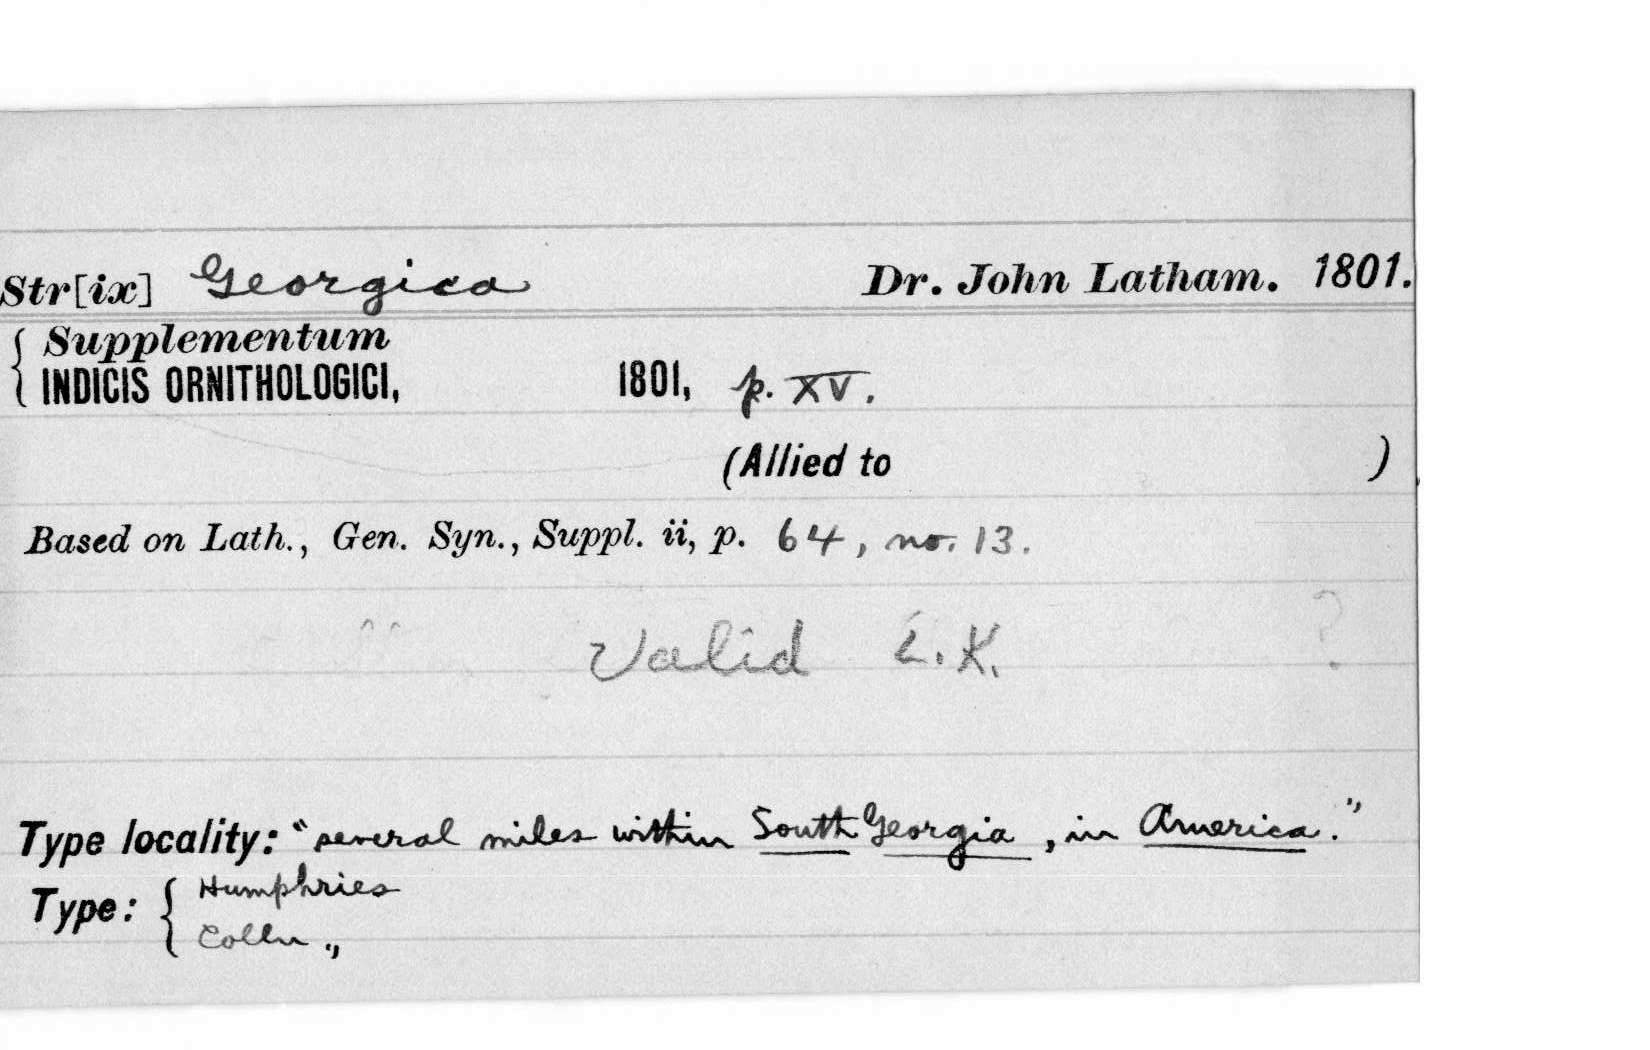 Str[ix] Georgica Dr. John Latham. 1801.
{ Supplementum
INDICIS ORNITHOLOGICI, 1801, p. XV.
(Allied to )
Based on Lath., Gen. Syn., Suppl. ii, p. 64, no. 13.
Valid L.K. ?
Type locality: "several miles within South Georgia, in America."
Type: { Humphries
Colln.,